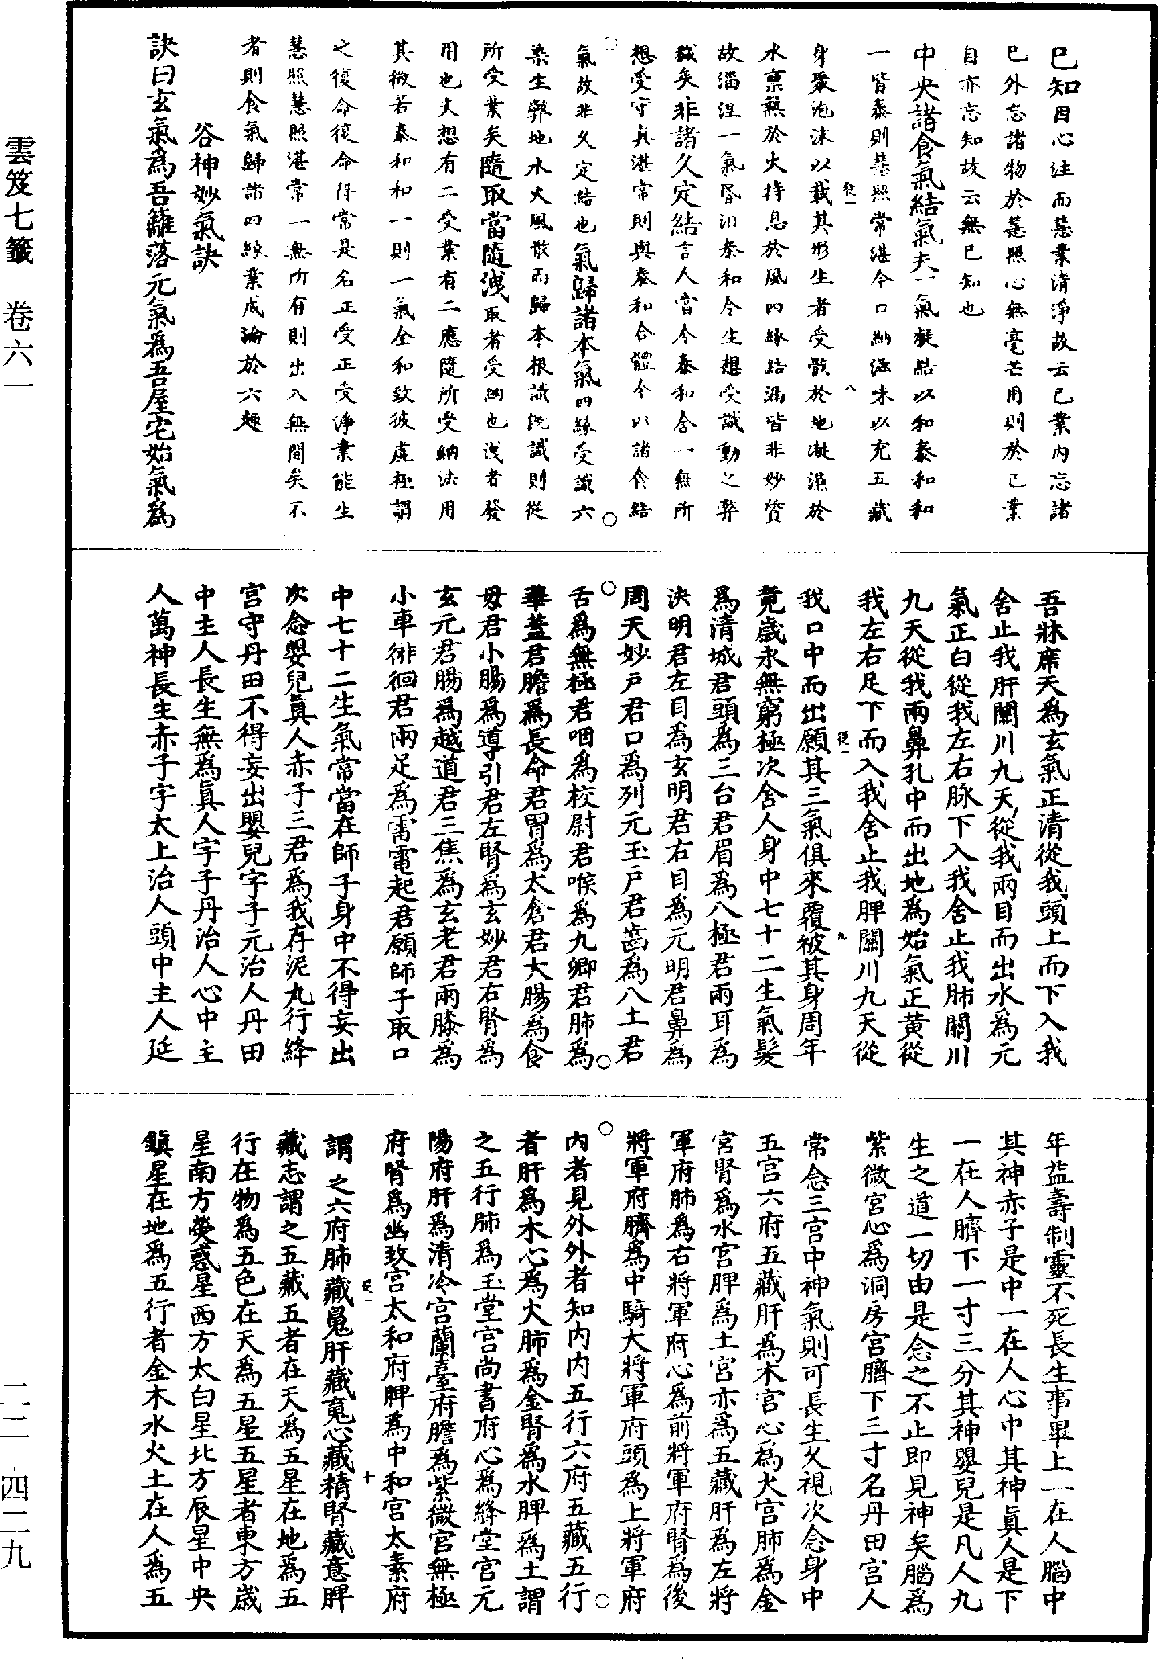 雲笈七籤 卷六一
二二 四二九
已知因心注而慧業清淨故云已業內忘諸
已外忘諸物於慧照心無毫芒用則於已業
自亦忘知故云無已知也
中央諸食氣結氣夫一氣凝結以和泰和和
一皆泰則慧照常湛今口納滋味以充五藏
身聚泡沫以載其形生者受骸於地凝濕於
水稟煖於火持息於風四緣結漏皆非妙質
故淄涅一氣昏汩泰和今生想受識動之弊
穢矣非諸久定結言人當令泰和合一無所
想受守真湛常則與泰和合體今以諸食結
氣故非久定結也氣歸諸本氣四緣受識六
染生弊地水火風散而歸本根識沉識則從
所受業矣隨取當隨洩取者受納也洩者發
用也夫想有二受業有二應隨所受納法用
其微若泰和和一則一氣全和致彼虛極謂
之復命復命得常是名正受正受淨業能生
慧照慧照湛常一無所有則出入無間矣不
者則食氣歸諸四緣業成淪於六趣
谷神妙氣訣
訣曰玄氣為吾籬落元氣為吾屋宅始氣為
吾牀席天為玄氣正清從我頭上而下入我
舍止我肝關川九天從我兩目而出水為元
氣正白從我左右脉下入我舍止我肺關川
九天從我兩鼻孔中而出地為始氣正黃從
我左右足下而入我舍止我脾關川九天從
我口中而出願其三氣俱來覆被其身周年
竟歲永無窮極次舍人身中七十二生氣髮
為清城君頭為三台君眉為八極君兩耳為
決明君左目為玄明君右目為元明君鼻為
周天妙戶君口為列元玉戶君齒為八土君
舌為無極君咽為校尉君喉為九卿君肺為
華蓋君膽為長命君胃為太倉君大腸為食
母君小腸為導引君左腎為玄妙君右腎為
玄元君腸為越道君三焦為玄老君兩膝為
小車徘徊君兩足為雷電起君願師子取口
中七十二生氣常當在師子身中不得妄出
次念嬰兒真人赤子三君為我存泥丸行絳
宮守丹田不得妄出嬰兒字子元治人丹田
中主人長生無為真人字子丹治人心中主
人萬神長生赤子字太上治人頭中主人延
年益壽制靈不死長生事畢上一在人腦中
其神赤子是中一在人心中其神真人是下
一在人臍下一寸三分其神嬰兒是凡人九
生之道一切由是念之不止即見神矣腦為
紫微宮心為洞房宮臍下三寸名丹田宮人
常念三宮中神氣則可長生久視次念身中
五宮六府五藏肝為木宮心為火宮肺為金
宮腎為水宮脾為土宮亦為五藏肝為左將
軍府肺為右將軍府心為前將軍府腎為後
將軍府臍為中騎大將軍府頭為上將軍府
內者見外外者知內內五行六府五藏五行
者肝為木心為火肺為金腎為水脾為土謂
之五行肺為玉堂宮尚書府心為絳堂宮元
陽府肝為清冷宮蘭臺府膽為紫微宮無極
府腎為幽玫宮太和府脾為中和宮太素府
謂之六府肺藏魄肝藏魂心藏精腎藏意脾
藏志謂之五藏五者在天為五星在地為五
行在物為五色在天為五星五星者東方歲
星南方熒惑星西方太白星北方辰星中央
鎮星在地為五行者金木水火土在人為五